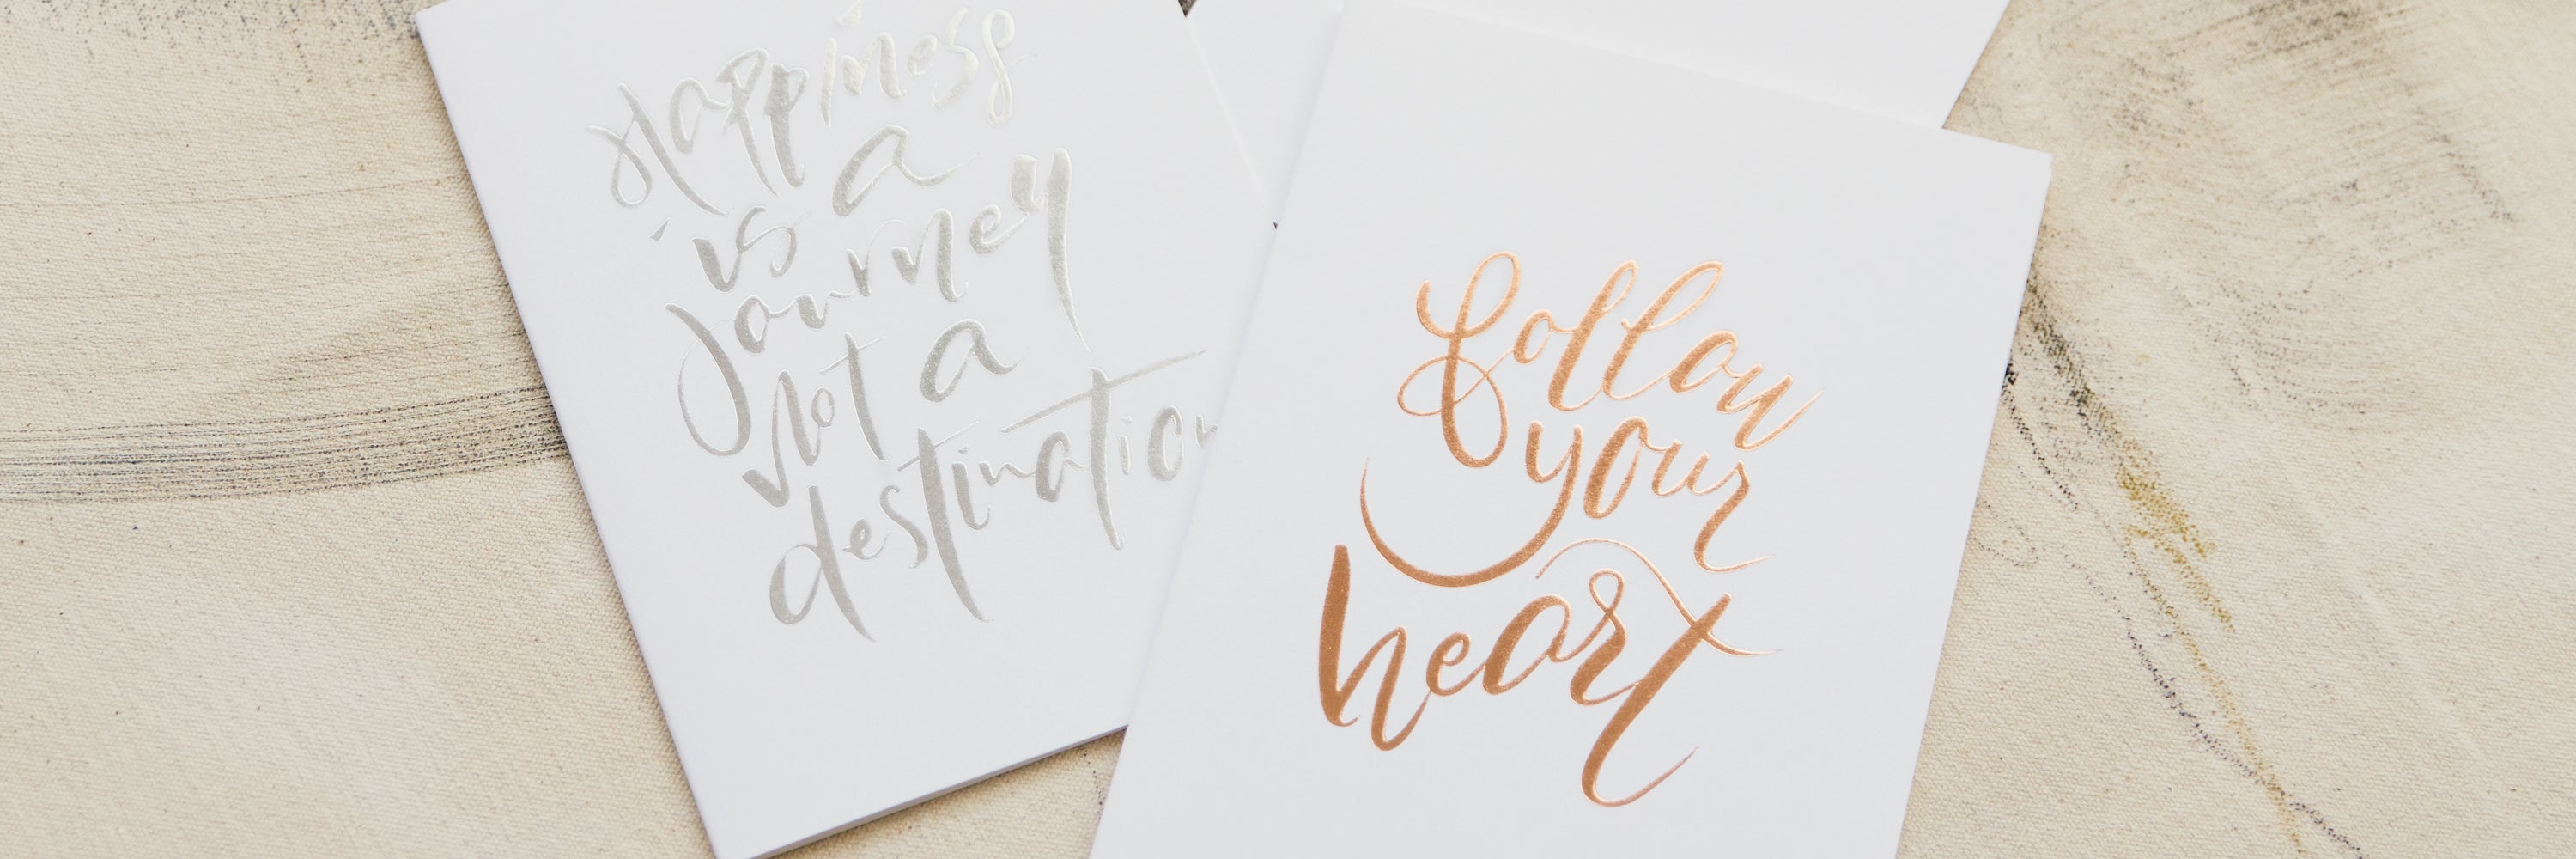 Happiness
is a
journey
not a
destination
follow
your
heart